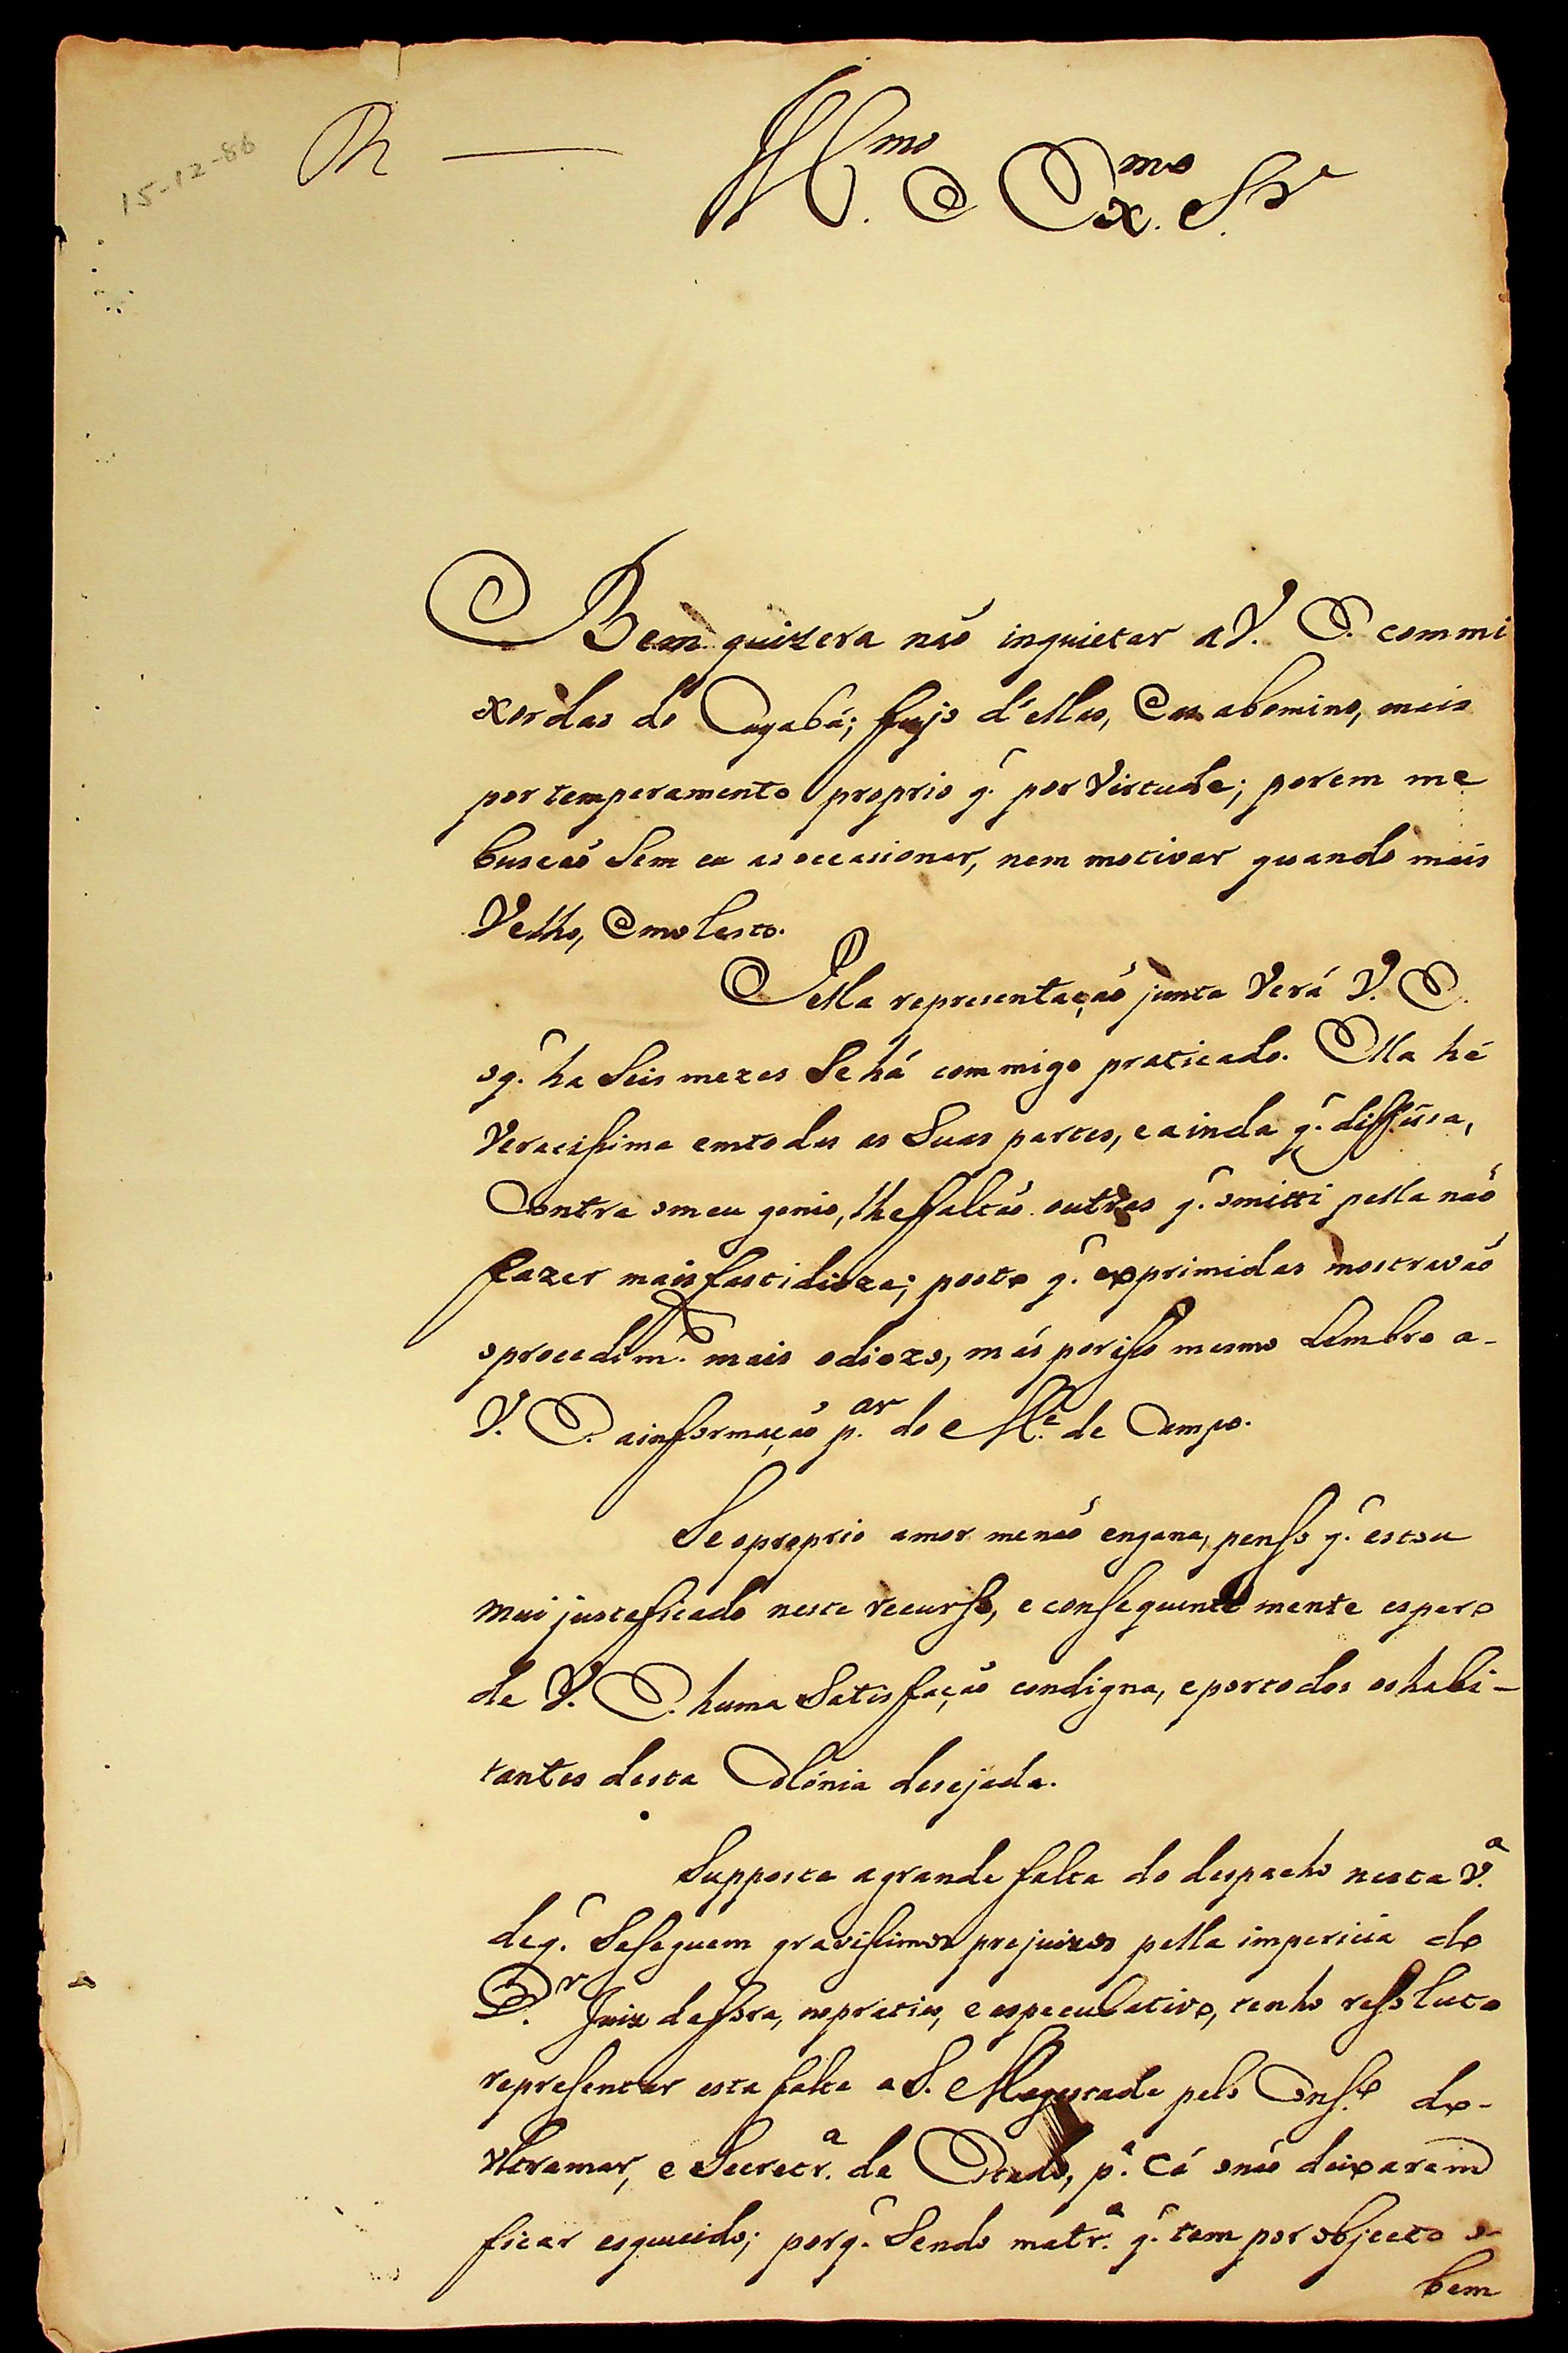 15-12-86
R
Ill.mo e Ex.mo Sr
Bem quizera não inquietar a V. E. com mi
xordas do Cuyabá; fujo d'ellas, e as abomino, mais
por temperamento proprio q̃. por Virtude; porem me
buscaõ Sem eu as occasionar, nem motivar quando mais
Velho, e molesto.
Pella representação junta Verá V. E.
o q̃. ha Seis mezes Se há commigo praticado. Ella hé
Veracissima em todas as Suas partes, e ainda q̃. diffusa,
Contra o meu genio, lhe faltaõ outras q̃. omitti pella não
fazer mais fastidioza; posto q̃. exprimidas mostravaõ
o procedim.to mais odiozo, más por isso mesmo Lembro a-
V. E. a informação p.ar do M.e de Campo.
Se o proprio amor me não engana, penso q̃. estou
mui justeficado neste recurso, e conseguente mente espero
de V. E. huma Satisfação condigna, e por todos os habi-
tantes desta Colónia desejada.
Supposta a grande falta do despacho nesta V.a
de q̃. Se seguem gravissimos prejuizos pella impericia do
D.r Juiz de fora, no pratico, e especulativo, tenho resoluto
representar esta falta a S. Magestade pelo Cons.o do-
Ultramar, e Secretr.a de Estado, p.a Cá o não deixarem
ficar esquecido; porq̃. Sendo matr.a q̃. tem por objecto o-
bem